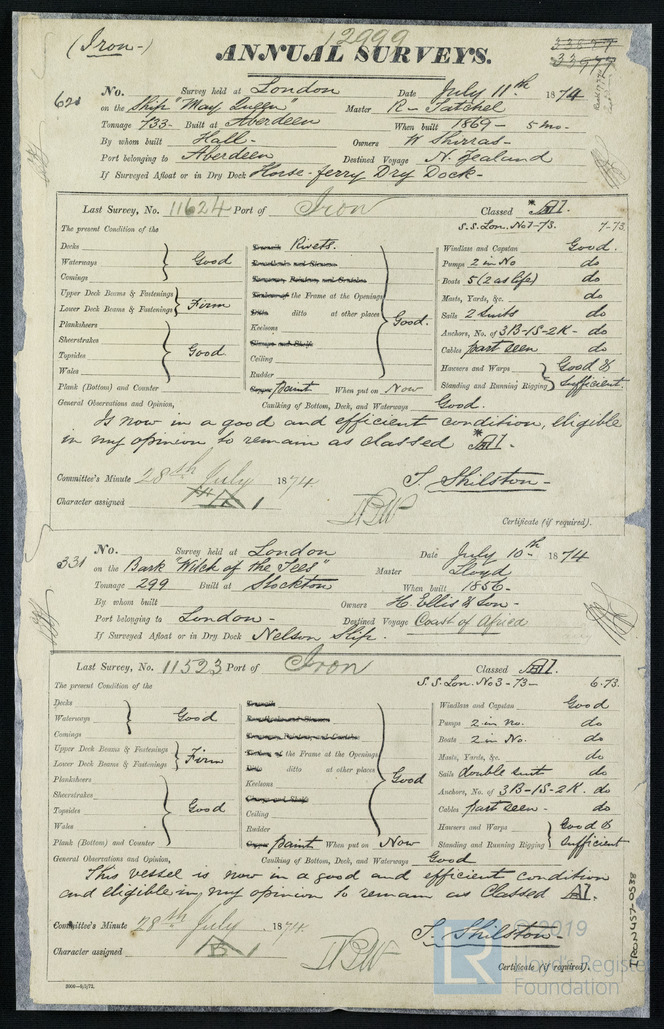 (Iron-)
12999
33877
33977
ANNUAL SURVEYS.
No. Survey held at London Date July 11th 1874
621 on the Ship "May Queen" Master R- Tatchel
Tonnage 733- Built at Aberdeen When built 1869- 5 mo-
By whom built Hall- Owners W Shirras-
Port belonging to Aberdeen Destined Voyage N. Zealand
If Surveyed Afloat or in Dry Dock Horse-ferry Dry Dock-
Last Survey, No. 11624 Port of Iron Classed * A1.
S.S. Lon. No 1-73. 7-73.
The present Condition of the
Decks
Waterways
Comings
Good
Upper Deck Beams & Fastenings
Lower Deck Beams & Fastenings
Firm
Planksheers
Sheerstrakes
Topsides
Wales
Good
Plank (Bottom) and Counter
Rivets.
the Frame at the Openings
ditto at other places
Keelsons
Ceiling
Rudder
Good.
paint When put on Now
Windlass and Capstan Good.
Pumps 2 in No do
Boats 5 (2 as life) do
Masts, Yards, &c. do
Sails 2 Suits do
Anchors, No. of 3B-1S-2K- do
Cables part seen do
Hawsers and Warps
Standing and Running Rigging
Good & Sufficient.
General Observations and Opinion, Caulking of Bottom, Deck, and Waterways Good.
Is now in a good and efficient condition, eligible
in my opinion to remain as classed * A1.
Committee's Minute 28th July 1874
T. Skilston-
Character assigned
Certificate (if required).
No. Survey held at London Date July 10th 1874
331 on the Bark "Witch of the Tees" Master Lloyd
Tonnage 299 Built at Stockton When built 1856-
By whom built Owners H Ellis & Son-
Port belonging to London- Destined Voyage Coast of Africa
If Surveyed Afloat or in Dry Dock Nelson Slip.
Last Survey, No. 11523 Port of Iron Classed A1.
S.S. Lon. No 3-73- 6.73.
The present Condition of the
Decks
Waterways
Comings
Good
Upper Deck Beams & Fastenings
Lower Deck Beams & Fastenings
Firm
Planksheers
Sheerstrakes
Topsides
Wales
Good
Plank (Bottom) and Counter
the Frame at the Openings
ditto at other places
Keelsons
Ceiling
Rudder
Good
paint When put on Now
Windlass and Capstan Good
Pumps 2 in no. do
Boats 2 in No. do
Masts, Yards, &c. do
Sails double suits do
Anchors, No. of 3B-1S-2K. do
Cables part seen- do
Hawsers and Warps
Standing and Running Rigging
Good & Sufficient
General Observations and Opinion, Caulking of Bottom, Deck, and Waterways Good
This vessel is now in a good and efficient condition
and eligible in my opinion to remain as Classed A1.
Committee's Minute 28th July 1874
T. Skilston-
Character assigned
Certificate (if required).
IRON457-0538
©2019
LR Lloyd's Register
Foundation